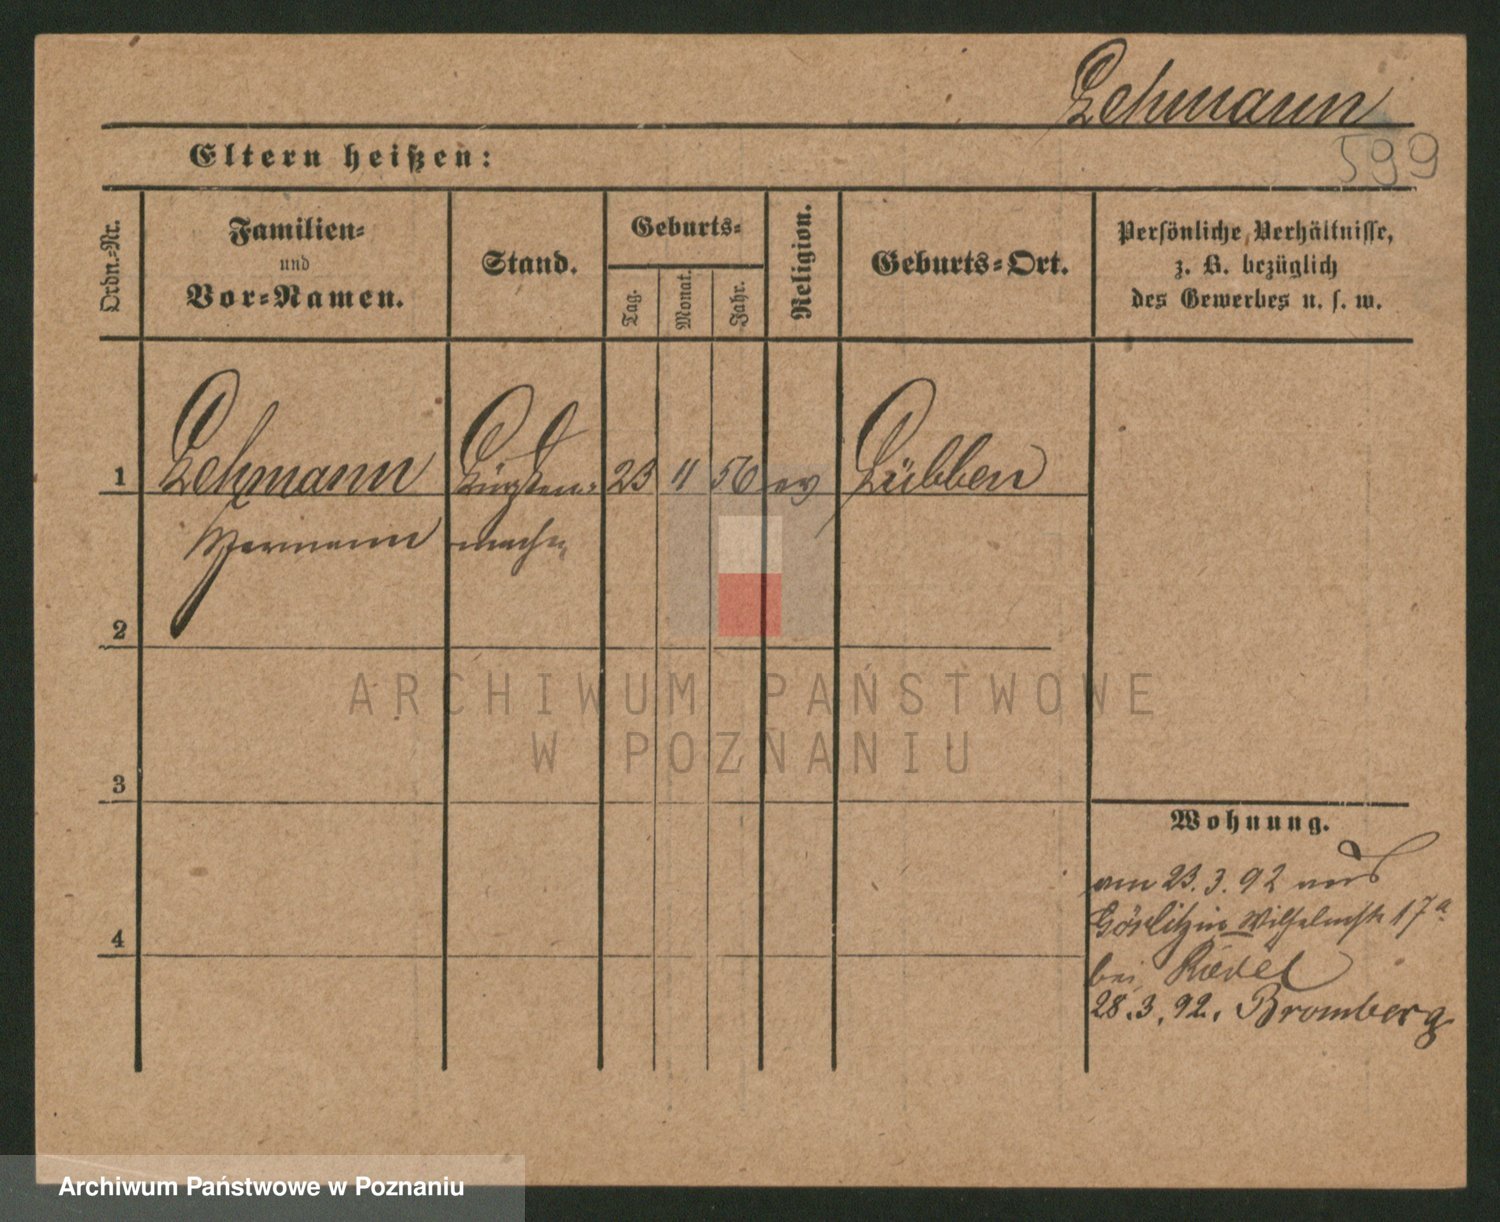 Lehmann
599
Eltern heißen:
Ordn.-Nr.
Familien-
und
Vor-Namen.
Stand.
Geburts-
Tag.
Monat.
Jahr.
Religion.
Geburts-Ort.
Persönliche Verhältnisse,
z. B. bezüglich
des Gewerbes u. s. w.
1 Lehmann Bürsten- 23 11 56 ev Lübben
Hermann macher
2
3
4
Wohnung.
am 23.3.92 aus
Görlitz in Wilhelmstr 17a
bei Riedel
28.3.92. Bromberg
ARCHIWUM PAŃSTWOWE
W POZNANIU
Archiwum Państwowe w Poznaniu